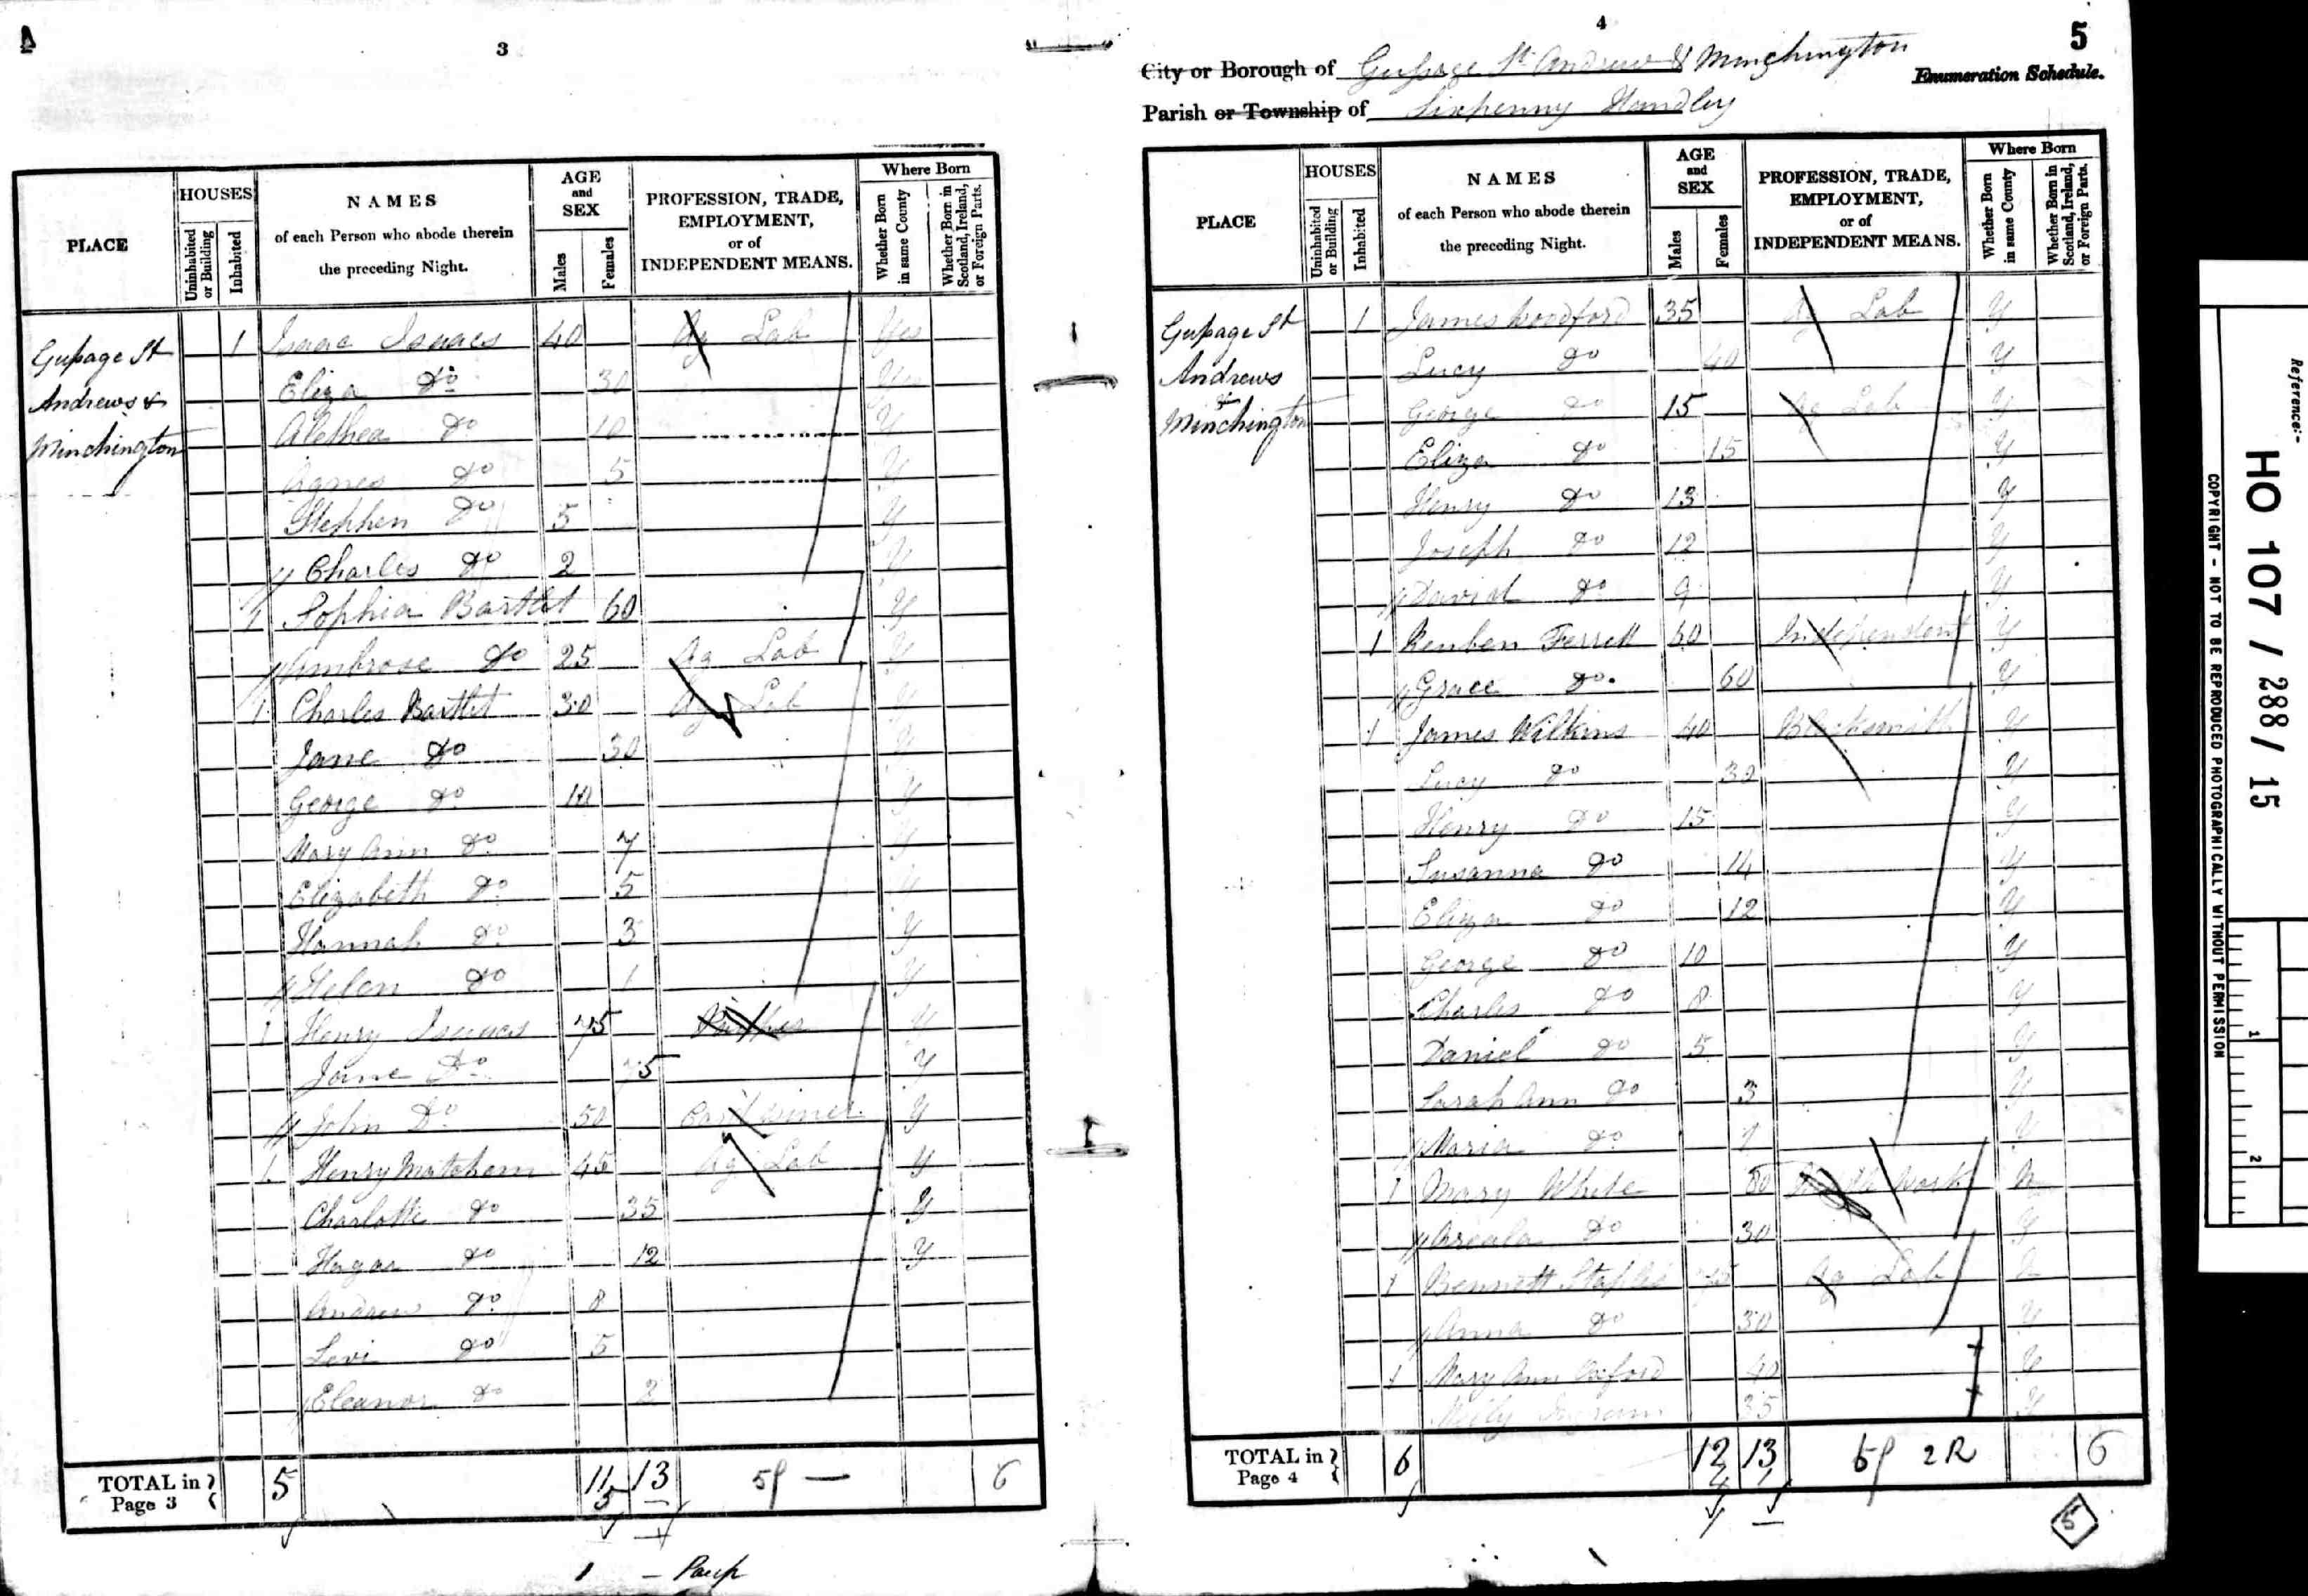 3
PLACE
HOUSES
Uninhabited or Building
Inhabited
NAMES
of each Person who abode therein
the preceding Night.
AGE
and
SEX
Males
Females
PROFESSION, TRADE,
EMPLOYMENT,
or of
INDEPENDENT MEANS.
Where Born
Whether Born in same County
Whether Born in Scotland, Ireland, or Foreign Parts.
Gussage St
Andrews &
Minchington
1 Isaac Isaacs 40 Ag Lab Yes
Eliza Do 30 Yes
Alethea Do 10 Y
Agnes Do 5 Y
Stephen Do 5 Y
Charles Do 2 Y
1 Sophia Bartlet 60 Y
Ambrose Do 25 Ag Lab Y
1 Charles Bartlet 30 Ag Lab Y
Jane Do 30 Y
George Do 10 Y
Mary Ann Do 7 Y
Elizabeth Do 5 Y
Hannah Do 3 Y
Helen Do 1 Y
1 Henry Isaacs 75 Y
Jane Do 75 Y
John Do 50 Y
1 Henry Matcham 45 Ag Lab Y
Charlotte Do 35 Y
Hagar Do 12 Y
Andrew Do 8
Levi Do 5
Eleanor Do 2
TOTAL in Page 3 5 11 13 5p — 6
5
1 — Paup
4
5
City or Borough of Gussage St Andrew & Minchington
Enumeration Schedule.
Parish or Township of Sixpenny Handley
PLACE
HOUSES
Uninhabited or Building
Inhabited
NAMES
of each Person who abode therein
the preceding Night.
AGE
and
SEX
Males
Females
PROFESSION, TRADE,
EMPLOYMENT,
or of
INDEPENDENT MEANS.
Where Born
Whether Born in same County
Whether Born in Scotland, Ireland, or Foreign Parts.
Gussage St
Andrews
&
Minchington
1 James Woodford 35 Ag Lab Y
Lucy Do 40 Y
George Do 15 Ag Lab Y
Eliza Do 15 Y
Henry Do 13 Y
Joseph Do 12 Y
David Do 9 Y
1 Reuben Ferrett 60 Independent Y
Grace Do 60 Y
1 James Wilkins 40 Blacksmith Y
Lucy Do 30 Y
Henry Do 15 Y
Susanna Do 14 Y
Eliza Do 12 Y
George Do 10 Y
Charles Do 8 Y
Daniel Do 5 Y
Sarah Ann Do 3 Y
Maria Do 1 Y
1 Mary White 80 Work N
Do 30 Y
1 Bennett Staples Ag Lab
Anna Do 30 Y
1 Mary Ann Oxford 40 Y
35 Y
TOTAL in Page 4 6 12 13 2 R 6
5
Reference:-
HO 107 / 288 / 15
COPYRIGHT - NOT TO BE REPRODUCED PHOTOGRAPHICALLY WITHOUT PERMISSION
1
2